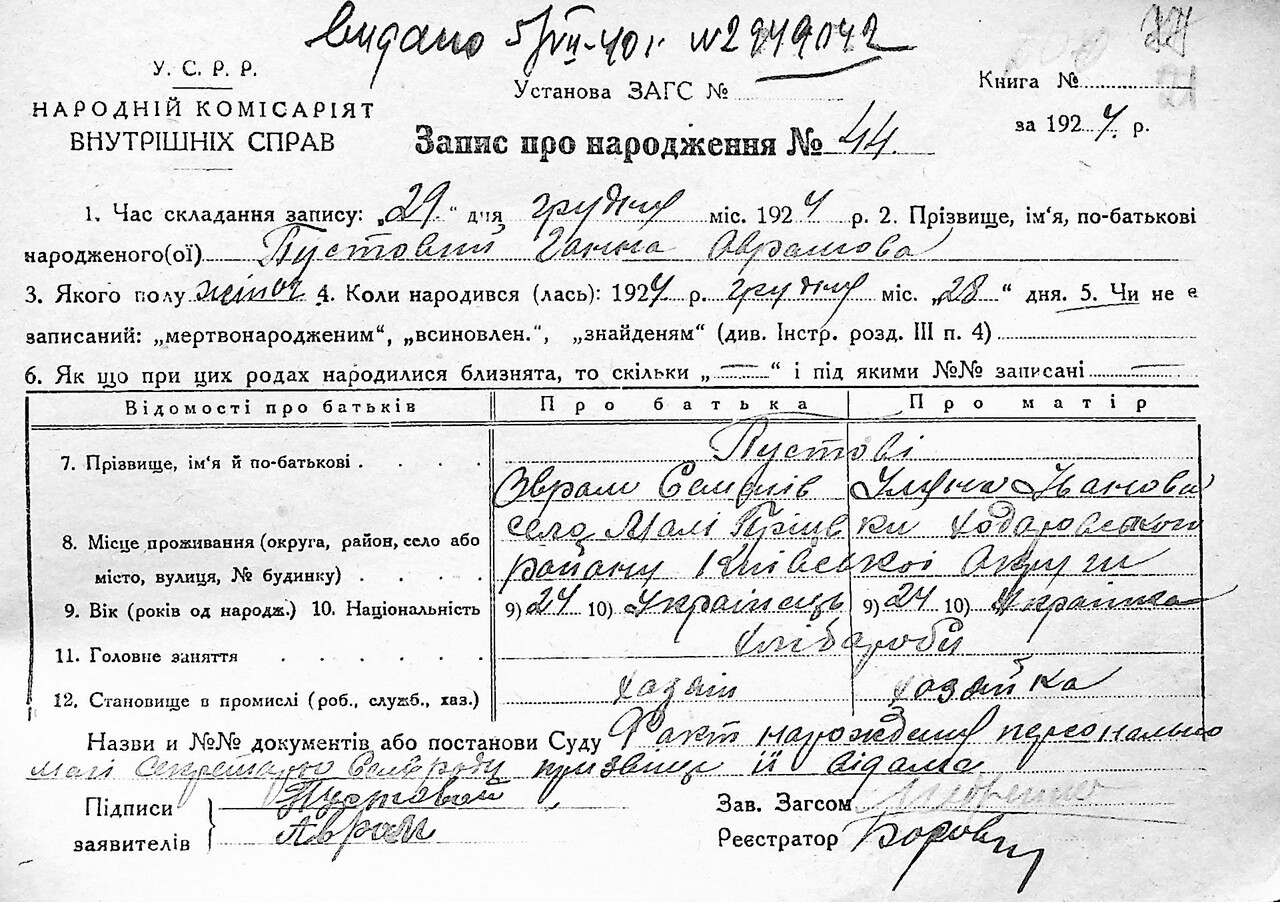 Видано 5/VII-40 г. №2949042
У. С. Р. Р.
НАРОДНІЙ КОМІСАРІЯТ
ВНУТРІШНІХ СПРАВ
Установа ЗАГС №
Книга №
за 1924 р.
Запис про народження № 44.
1. Час складання запису: „29“ дня грудня міс. 1924 р. 2. Прізвище, ім'я, по-батькові
народженого(ої) Пустовий Ганна Аврамова
3. Якого полу жіноч 4. Коли народився (лась): 1924 р. грудня міс. „28“ дня. 5. Чи не є
записаний: „мертвонародженим“, „всиновлен.“, „знайденям“ (див. Інстр. розд. III п. 4)
6. Як що при цих родах народилися близнята, то скільки „—“ і під якими №№ записані —
Відомості про батьків Про батька Про матір
7. Прізвище, ім'я й по-батькові Пустові
Аврам Іванова
8. Місце проживання (округа, район, село або село Малі Ходоровського
місто, вулиця, № будинку) району Київської Округи
9. Вік (років од народж.) 10. Національність 9) 24 10) Українець 9) 24 10) Українка
11. Головне заняття хлібароби
12. Становище в промислі (роб., служб., хаз.) хазяїн хазяйка
Назви и №№ документів або постанови Суду Факт нарождения персонально
секретарю призвище її відома
Підписи Пустовой
заявителів Аврам
Зав. Загсом
Реєстратор